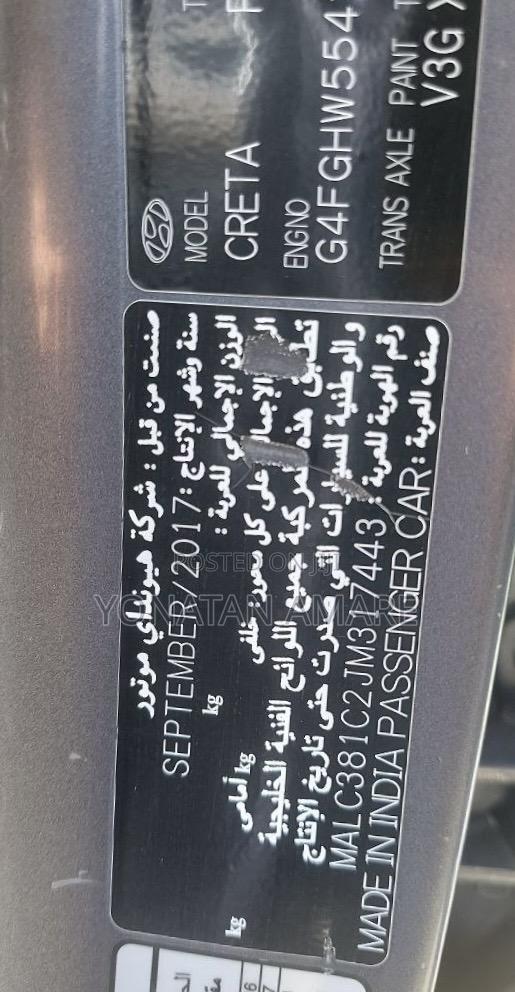 MODEL
CRETA
ENGNO
G4FGHW554
TRANS AXLE PAINT T
V3G
صنعت من قبل : شركة هيونداي موتور
سنة وشهر الإنتاج : SEPTEMBER/2017
الوزن الإجمالي للعربة : kg
الإجمالي على كل محور : خلفي kg أمامي kg
تطبيق هذه المركبة جميع اللوائح الفنية الخليجية
والوطنية للسيارات التي صدرت حتى تاريخ الإنتاج
رقم الهوية للعربة : MALC381C2JM317443
صنف العربة : MADE IN INDIA PASSENGER CAR
POSTED ON jiji
YONATAN AMARE